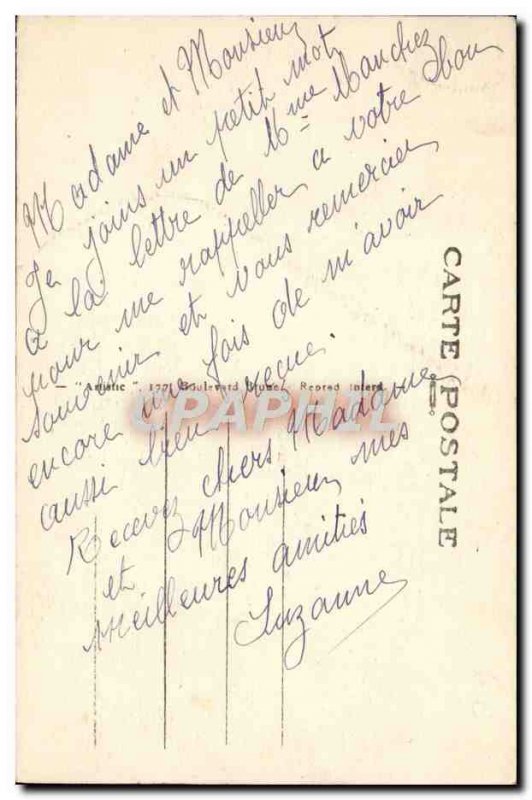 Madame et Monsieur
Je joins un petit mot
a la lettre de Mme Manchez
pour me rappeller a votre bon
souvenir et vous remercier
encore une fois de m'avoir
aussi bien reçue.
Recevez chers Madame
et Monsieur mes
meilleures amitiés
Suzanne
CARTE POSTALE
"Artistic", Boulevard Brune. Reprod interd.
CPAPHIL